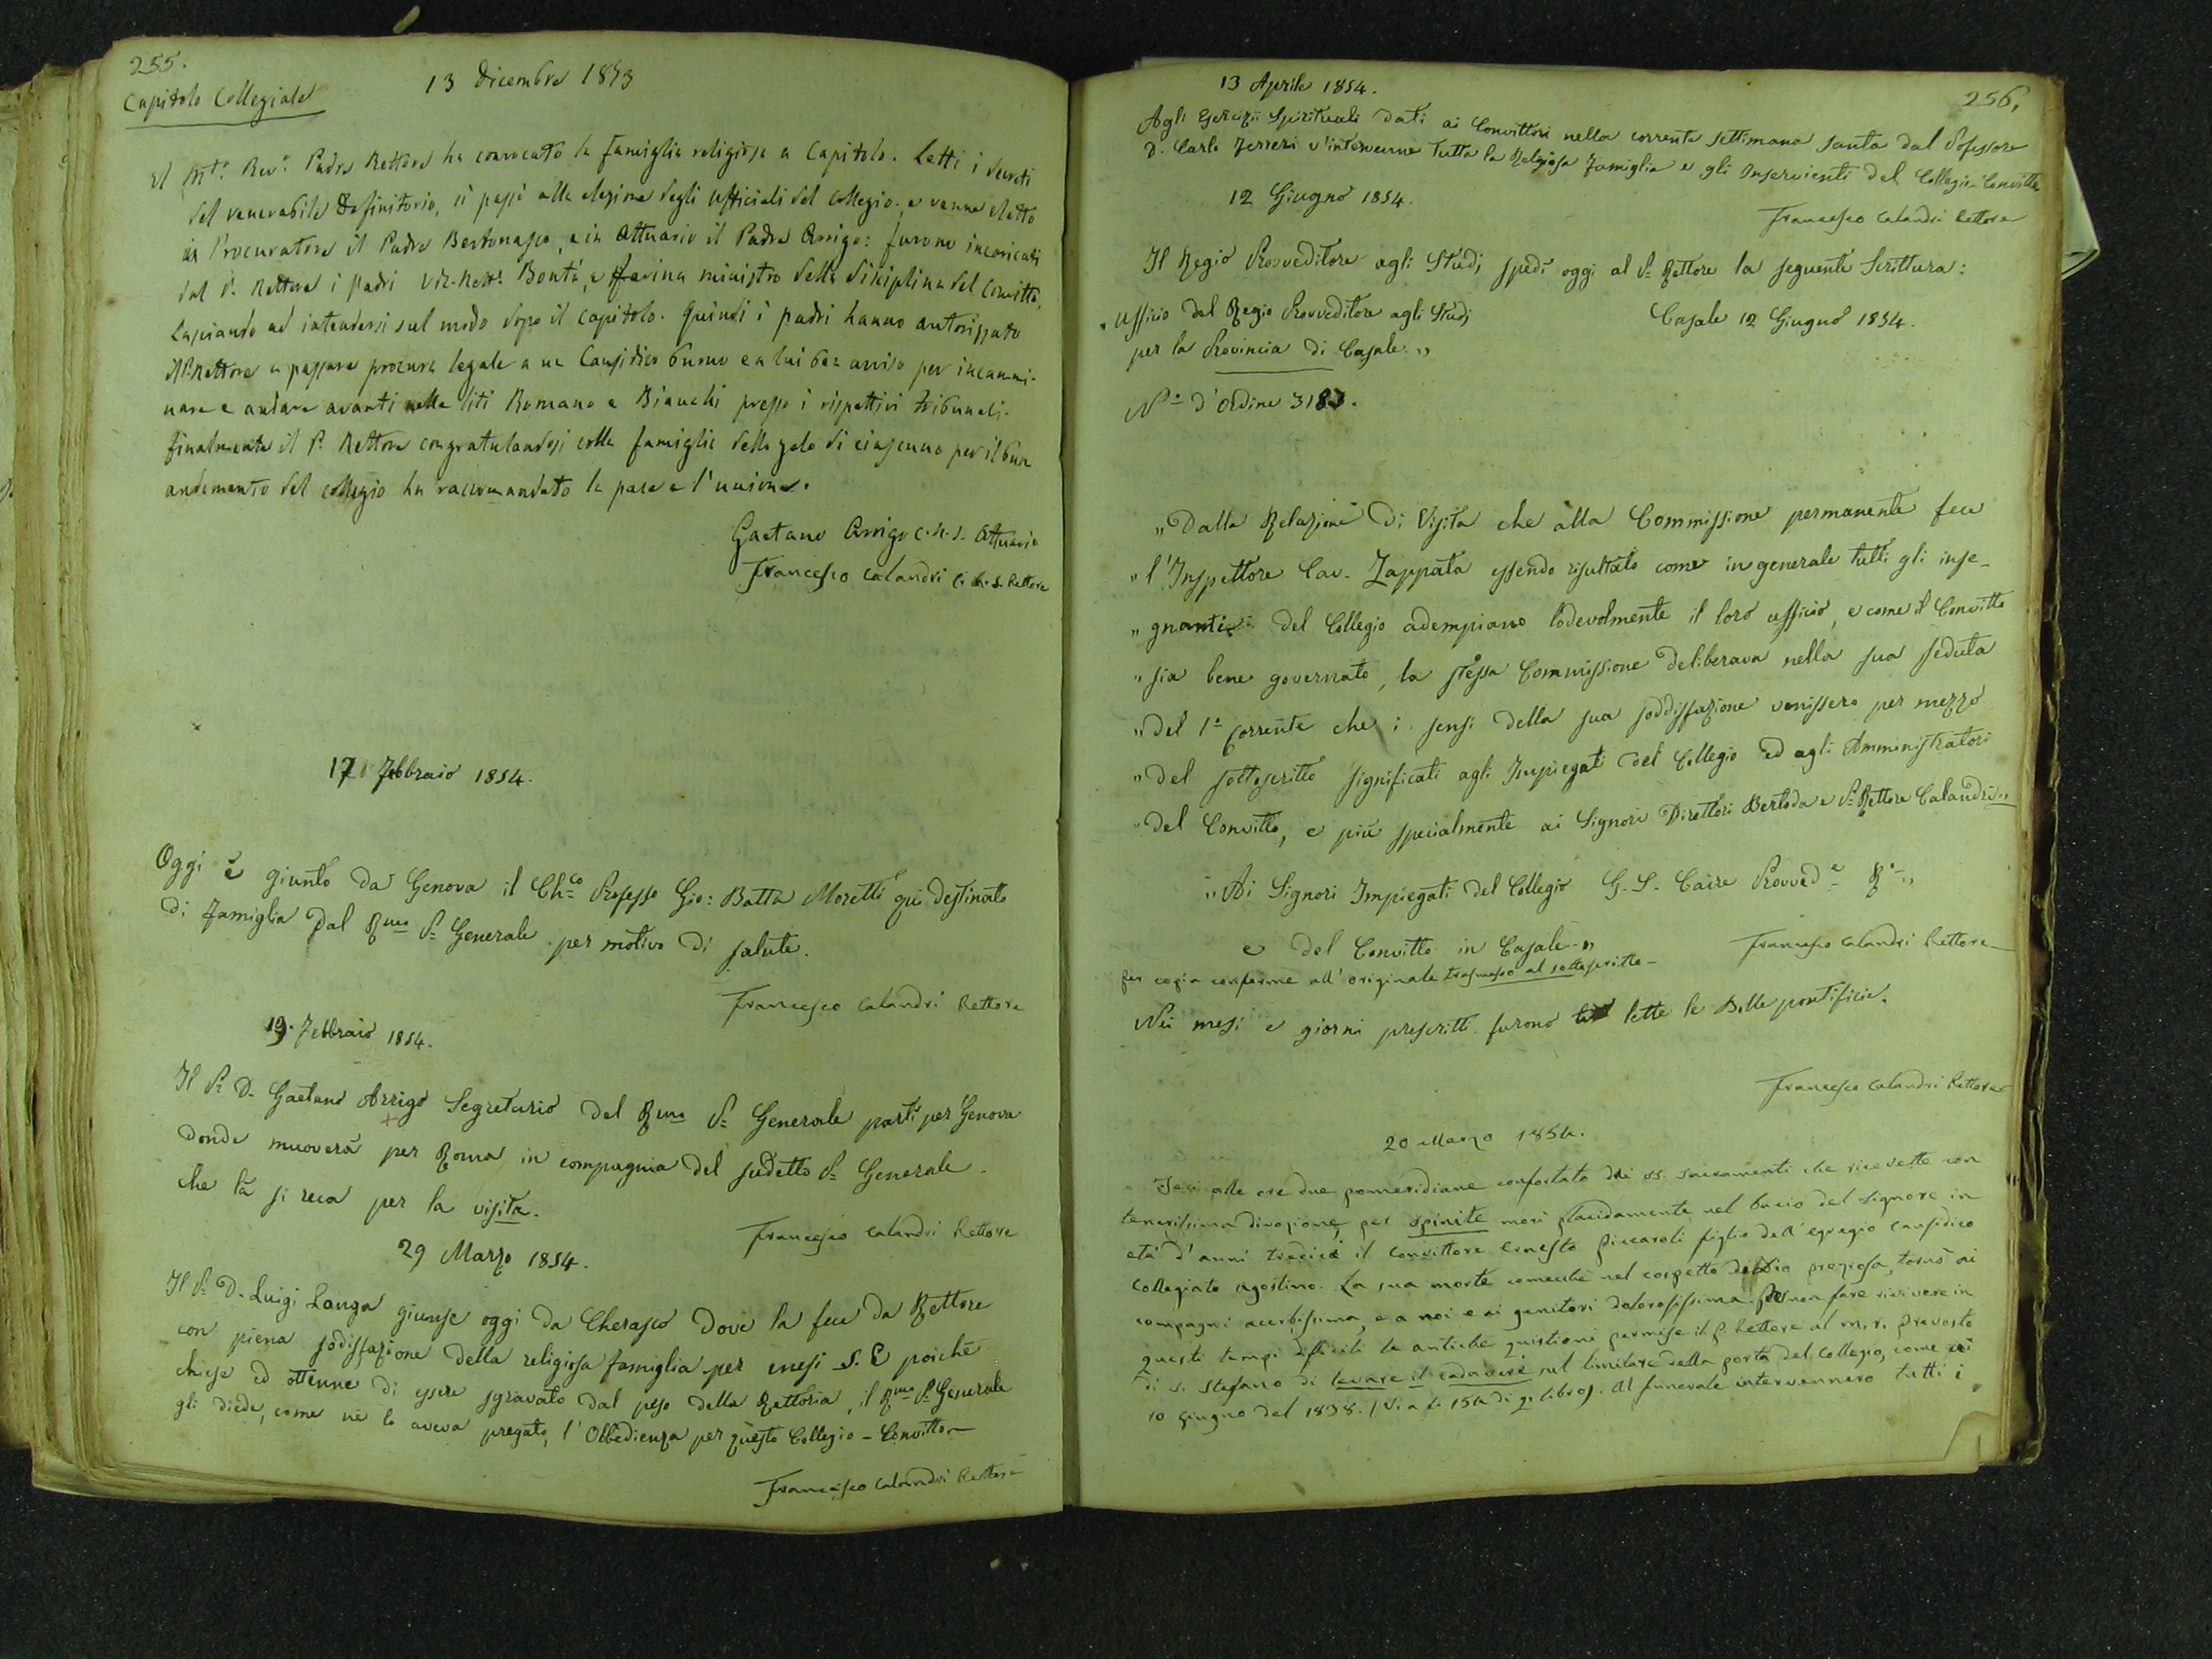 255.
13 Dicembre 1853
Capitolo Collegiale
Il M.to Rev.o Padre Rettore ha convocato la famiglia religiosa a Capitolo. Letti i decreti
del venerabile Definitorio, si passò alla elezione degli ufficiali del collegio. e venne eletto
in Procuratore il Padre Bertonasco, e in Attuario il Padre Arrigo: furono incaricati
dal P. Rettore i padri Vic-Rett.e Bontà, e ministro della disciplina del Convitto,
lasciando ad intendersi sul modo dopo il capitolo. Quindi i padri hanno autorizzato
il P. Rettore a passare procura legale a un Causidico buono e a lui ben avviso per incammi-
nare e andare avanti nelle liti Romano e Bianchi presso i rispettivi tribunali.
finalmente il P. Rettore congratulandosi colla famiglia dello zelo di ciascuno per il buon
andamento del collegio ha raccomandato la pace e l'unione.
Gaetano Arrigo C.R.S. Attuario
Francesco Calandri C.R.S. Rettore
17 Febbraio 1854.
Oggi è giunto da Genova il Ch.co Professo Gio: Batta Moretti qui destinato
di famiglia dal R.mo P. Generale per motivo di salute.
Francesco Calandri Rettore
19. Febbraio 1854.
Il P. D. Gaetano Arrigo Segretario del R.mo P. Generale partì per Genova
donde muoverà per Roma in compagnia del sudetto P. Generale
che là si reca per la visita.
Francesco Calandri Rettore
29 Marzo 1854.
Il P. D. Luigi Longa giunse oggi da Cherasco dove la fece da Rettore
con piena sodisfazione della religiosa famiglia per mesi 5. E poichè
chiese ed ottenne di essere sgravato dal peso della Rettoria, il R.mo P. Generale
gli diede, come ne lo aveva pregato, l'Obbedienza per questo Collegio - Convitto
Francesco Calandri Rettore
256.
13 Aprile 1854.
Agli Esercizii Spirituali dati ai Convittori nella corrente settimana santa dal Professore
D. Carlo Ferreri v'intervenne tutta la Religiosa Famiglia e gli Inservienti del Collegio Convitto
Francesco Calandri Rettore
12 Giugno 1854.
Il Regio Provveditore agli Studj spedì oggi al P. Rettore la seguente Scrittura:
„ Ufficio del Regio Provveditore agli Studj
Casale 12 Giugno 1854.
per la Provincia di Casale „
N.o d'Ordine 3183.
„ Dalla Relazione di Visita che alla Commissione permanente fece
„ l'Inspettore Cav. Zappata essendo risultato come in generale tutti gli inse-
„ gnanti del Collegio adempiano lodevolmente il loro ufficio, e come il Convitto
„ sia bene governato, la stessa Commissione deliberava nella sua seduta
„ del 1.o corrente che i sensi della sua soddisfazione venissero per mezzo
„ del sottoscritto significati agli Impiegati del Collegio ed agli Amministratori
„ del Convitto, e più specialmente ai Signori Direttori Bertoda e P. Rettore Calandri „
„ Ai Signori Impiegati del Collegio G. S. Caire Provved.e R.o „
e del Convitto in Casale „
Francesco Calandri Rettore
per copia conforme all'originale trasmesso al sottoscritto -
Nei mesi e giorni prescritti furono lette le Bolle pontificie.
Francesco Calandri Rettore
20 Marzo 1854.
Ieri alle ore due pomeridiane confortato dai SS. Sacramenti che ricevette con
tenerissima divozione, per spinite morì placidamente nel bacio del Signore in
età d'anni tredici il Convittore Ernesto Piccaroli figlio dell'egregio causidico
Collegiato Agostino. La sua morte comechè nel cospetto di Dio preziosa, tornò ai
compagni acerbissima, e a noi e ai genitori dolorosissima. Per non fare rivivere in
questi tempi difficili le antiche quistioni permise il P. Rettore al m. r. Prevosto
di S. Stefano di levare il cadavere sul limitare della porta del Collegio, come ai
10 Giugno del 1838. (V. a f. 154 di q. libro). Al funerale intervennero tutti i